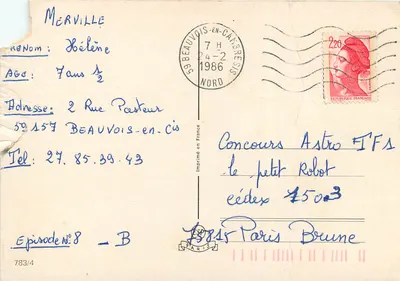 MERVILLE
PRÉNOM : Hélène
AGE : 7 ans 1/2
Adresse : 2 Rue Pasteur
59157 BEAUVOIS-EN-CIS
Tél : 27.85.39.43
Episode N°8 - B
783/4
Imprimé en France
59 BEAUVOIS-EN-CAMBRESIS
7 H
24-2
1986
NORD
2,20
Concours Astro TF1
le petit Robot
cédex 1503
75815 Paris Brune